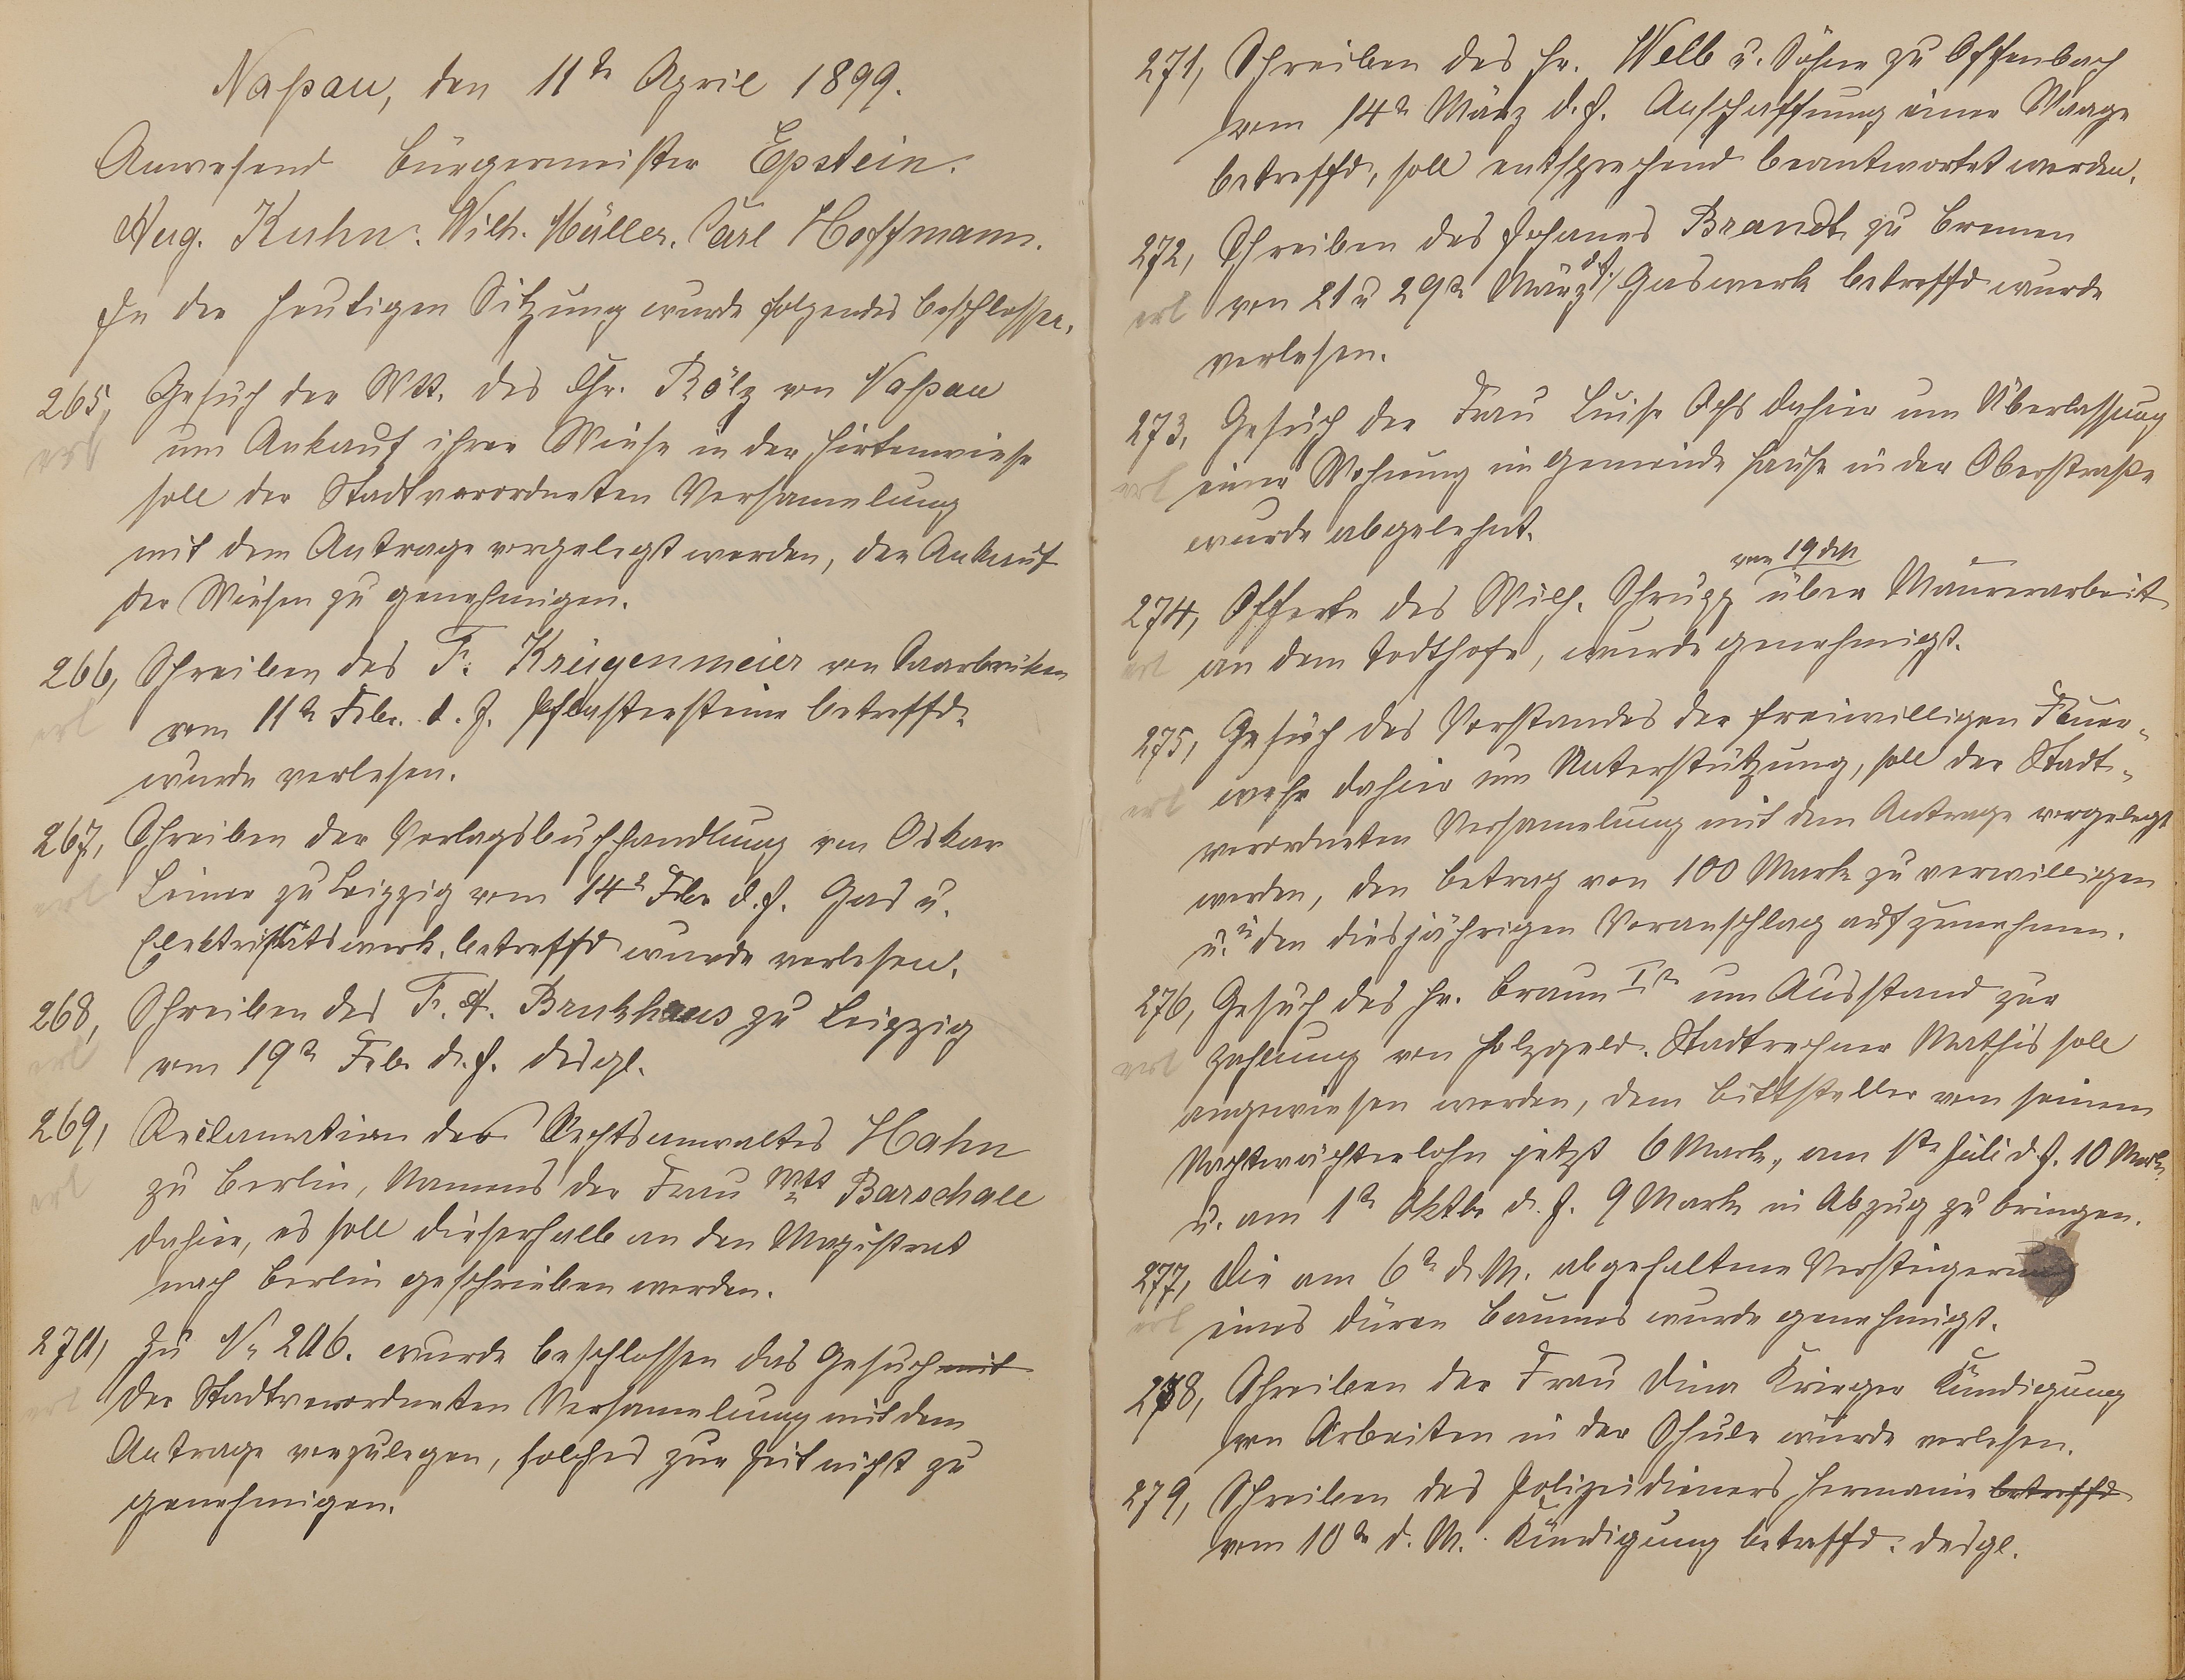 Naßau, den 11te April 1899.
Anwesend Bürgermeister Epstein.
Aug. Kuhn. Wilh. Müller. Carl Hoffmann.
In der heutigen Sitzung wurde folgendes beschlossen.
265, Gesuch der Wtt. des Chr. Bölz von Naßau
erl um Ankauf ihrer Wiese in der Hirtenwiese
soll der Stadtverordneten Versamelung
mit dem Antrage vorgelegt werden, den Ankauf
der Wiesen zu genehmigen.
266, Schreiben des F. Krügenmeier von Saarbrüken
erl vom 11te Febr. d. J. Pflastersteine betreffd.
wurde verlesen.
267, Schreiben der Verlagsbuchhandlung von Oskar
erl Leiner zu Leipzig vom 14te Febr d. J. Gas u.
Elektrisitätswerk, betreffd wurde verlesen.
268, Schreiben des F. A. Brukhaus zu Leipzig
erl vom 19te Feb. d. J. desgl.
269, Reclamation des Rechtsanwaltes Hahn
erl zu Berlin, Namens der Frau Wtt Barschall
dahier, es soll dieserhalb an den Magistrat
nach Berlin geschrieben werden.
270, Zu No 206. wurde beschlossen das Gesuch mit
erl der Stadtverordneten Versamelung mit dem
Antrage vorzulegen, solches zur Zeit nicht zu
genehmigen.
271, Schreiben des Hr. Welb u. Söhne zu Offenbach
vom 14te März d. J. Anschaffung einer Waage
betreffd, soll entsprechend beantwortet werden.
272, Schreiben des Johanes Brandt zu Bremen
erl von 21 u 29te März d. J. Gaswerk betreffd wurde
verlesen.
273, Gesuch der Frau Luise Ochs dahier um Überlassung
erl einer Wohnung im Gemeinde Hause in der Oberstraße
wurde abgelehnt.
vom 19 d M
274, Offerte des Wilh. Schrupp über Maurerarbeit
erl an dem Todthofe, wurde genehmigt.
275, Gesuch des Vorstandes der freiwilligen Feuer-
erl wehr dahier um Unterstützung, soll der Stadt-
verordneten Versamelung mit dem Antrage vorgelegt
werden, den Betrag von 100 Mark zu verwilligen
u. i den diesjährigen Voranschlag aufzunehmen.
276, Gesuch des Hr. Braun Ite um Ausstand zur
erl Zahlung von Holzgeld. Stadtrechner Mathis soll
angewiesen werden, dem Bittsteller von seinem
Nachtwächterlohn jetzt 6 Mark, am 1te Juli d. J. 10 Mark,
u. am 1te Oktbr d. J. 9 Mark in Abzug zu bringen.
277, Die am 6te d. M. abgehaltene Versteigerung
erl eines düren Baumes wurde genehmigt.
278, Schreiben der Frau Dina Krieger Kündigung
von Arbeiten in der Schule wurde verlesen.
279, Schreiben des Polizeidieners Hermanie betreffd
vom 10te d. M. Kündigung betreffd. desgl.